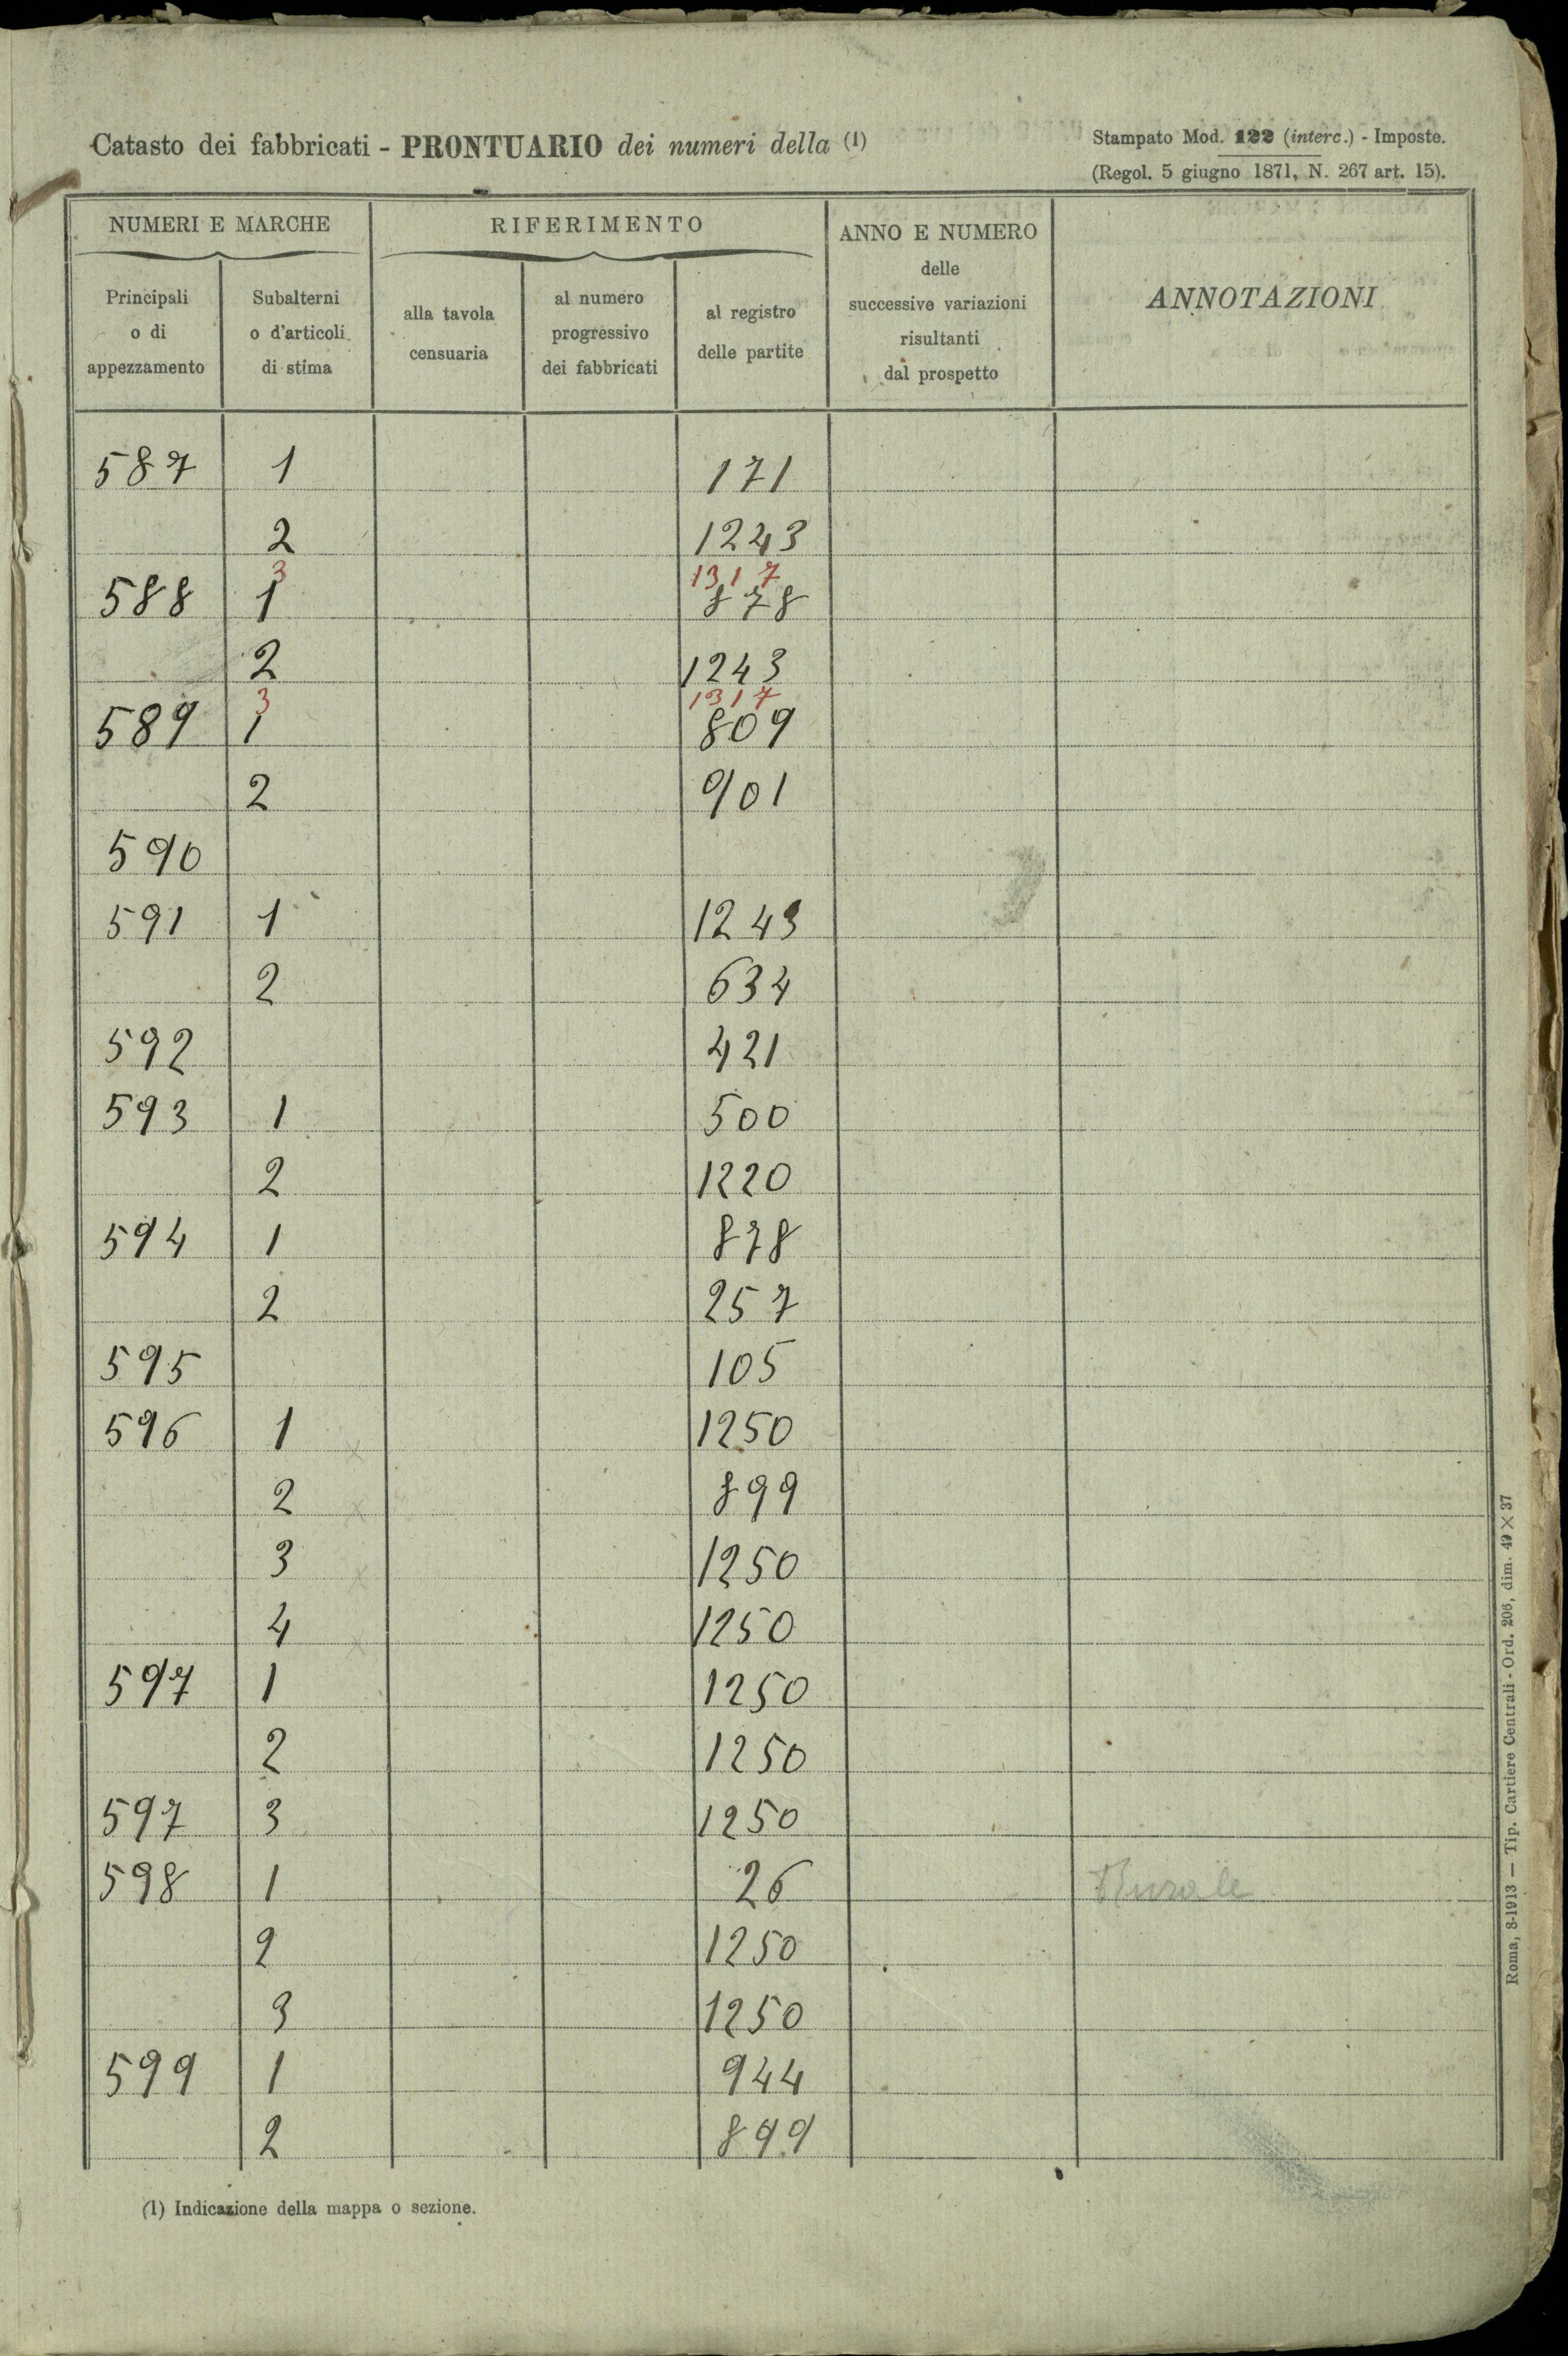 Catasto dei fabbricati - PRONTUARIO dei numeri della (1)
Stampato Mod. 122 (interc.) - Imposte.
(Regol. 5 giugno 1871, N. 267 art. 15).
NUMERI E MARCHE
RIFERIMENTO
ANNO E NUMERO
delle
successive variazioni
risultanti
dal prospetto
ANNOTAZIONI
Principali
o di
appezzamento
Subalterni
o d'articoli
di stima
alla tavola
censuaria
al numero
progressivo
dei fabbricati
al registro
delle partite
587 1 171
2 1243
3 1317
588 1 878
2 1243
3 1317
589 1 809
2 901
590
591 1 1243
2 634
592 421
593 1 500
2 1220
594 1 878
2 257
595 105
596 1 1250
2 899
3 1250
4 1250
597 1 1250
2 1250
597 3 1250
598 1 26 Rurale
2 1250
3 1250
599 1 944
2 899
(1) Indicazione della mappa o sezione.
Roma, 8-1913 — Tip. Cartiere Centrali - Ord. 206, dim. 49 × 37